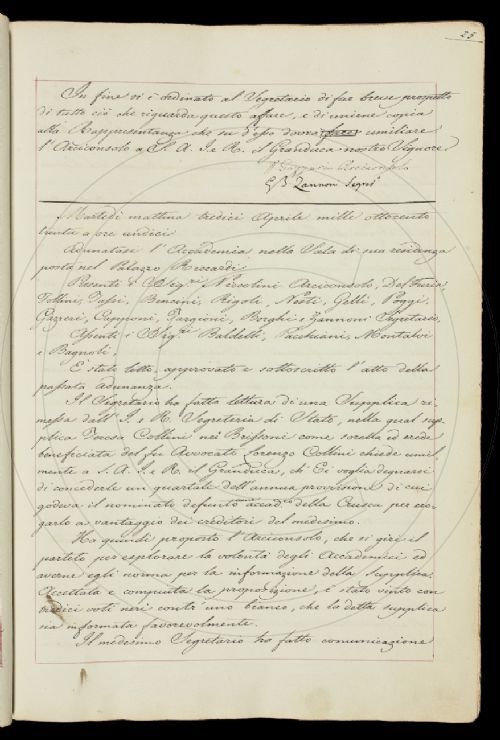 25
In fine si è ordinato al Segretario di far breve prospetto
di tutto ciò che riguarda questo affare, e di unirne copia
alla Rappresentanza che su d'esso dovrà umiliare
l'Arciconsolo a S. A. I. e R. il Granduca nostro Signore.
Arciconsolo
G B Zannoni Segret.°
Martedì mattina tredici Aprile mille ottocento
trenta a ore undici
Adunatasi l'Accademia nella Sala di sua residenza
posta nel Palazzo Riccardi;
Presenti i Sigg.ri Niccolini Arciconsolo, Del Furia,
Follini, Tassi, Bencini, Rigoli, Nesti, Gelli, Poggi,
Gazzeri, Capponi, Targioni, Borghi e Zannoni Segretario,
Assenti i Sigg.ri Baldelli, Pacchiani, Montalvi
e Bagnoli,
È stato letto, approvato e sottoscritto l'atto della
passata adunanza.
Il Segretario ha fatto lettura di una Supplica ri-
messa dall'I. e R. Segreteria di Stato, nella qual sup-
plica Teresa Collini nei Brissoni come sorella ed erede
beneficiata del fu Avvocato Lorenzo Collini chiede umil-
mente a S. A. I. e R. il Granduca, ch'Ei voglia degnarsi
di concederle un quartale dell'annua provvisione di cui
godeva il nominato defunto accad.co della Crusca per ero-
garlo a vantaggio dei creditori del medesimo.
Ha quindi proposto l'Arciconsolo, che si giri il
partito per esplorare la volontà degli Accademici ed
averne egli norma per la informazione della supplica.
Accettata e compiuta la proposizione, è stato vinto con
tredici voti neri contr'uno bianco, che la detta supplica
sia informata favorevolmente.
Il medesimo Segretario ha fatto comunicazione